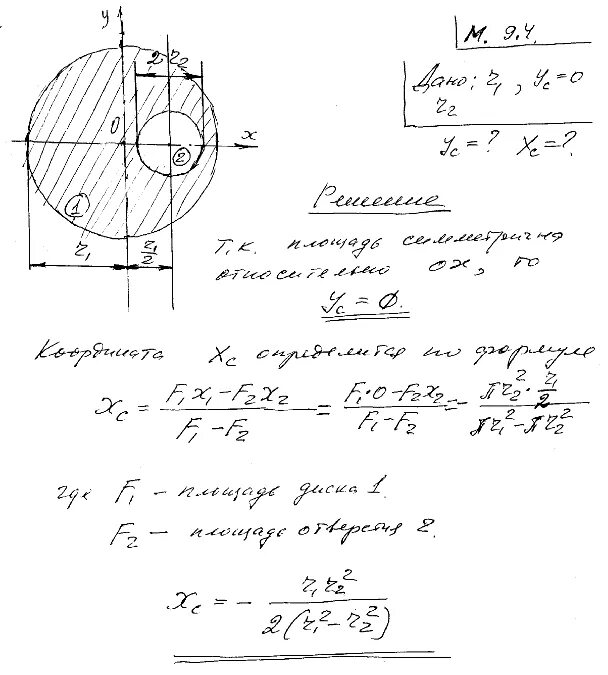 М. 9.4.
Дано: r₁, y_c=0
r₂
y_c=? x_c=?
y
2r₂
0
x
②
①
r₁
r₁/2
Решение
Т.к. площадь симметрична
относительно ох, то
y_c = 0.
Координата x_c определится по формуле
x_c = (F₁x₁-F₂x₂)/(F₁-F₂) = (F₁·0-F₂x₂)/(F₁-F₂) = - (πr₂²·r₁/2)/(πr₁²-πr₂²)
где F₁ - площадь диска 1.
F₂ - площадь отверстия 2.
x_c = - r₁r₂²/(2(r₁²-r₂²))